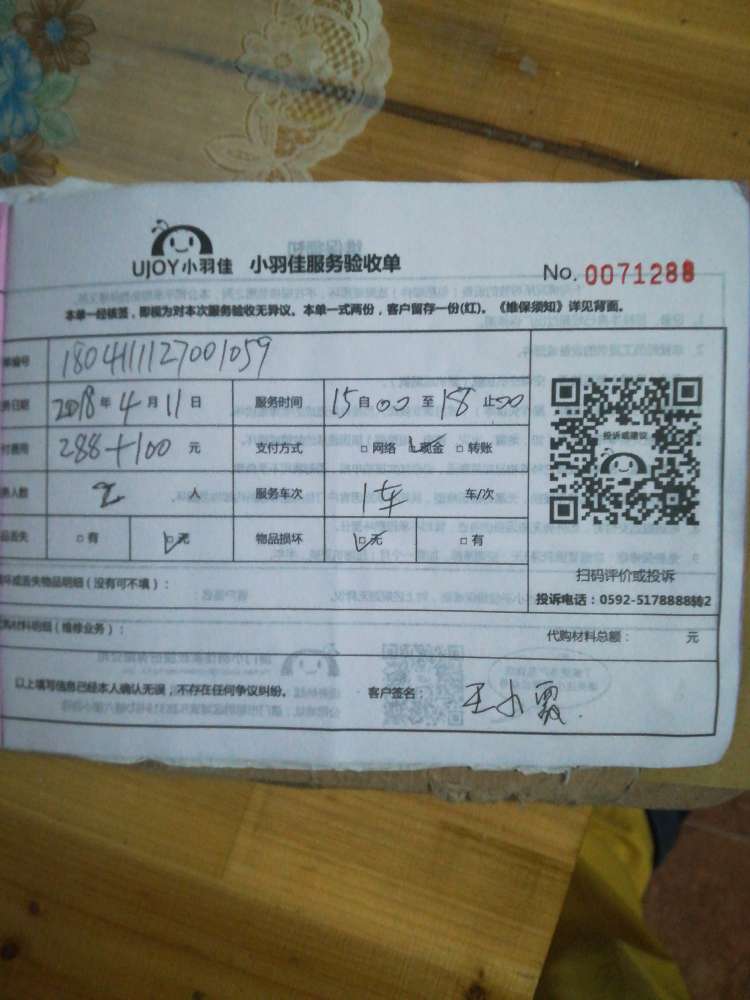 UJOY小羽佳 小羽佳服务验收单
No. 0071288
本单一经核签，即视为对本次服务验收无异议。本单一式两份，客户留存一份(红)。《维保须知》详见背面。
编号 180411127001059
务日期 2018年4月11日 服务时间 15自00至18止00
付费用 288+100 元 支付方式 □网络 □现金 □转账
务人数 2 人 服务车次 1车 车/次
品丢失 □有 □无 物品损坏 □无 □有
投诉或建议
扫码评价或投诉
投诉电话：0592-5178888转2
坏或丢失物品明细（没有可不填）：
代购材料明细（维修业务）： 代购材料总额： 元
以上填写信息已经本人确认无误，不存在任何争议纠纷。 客户签名： 王小霞